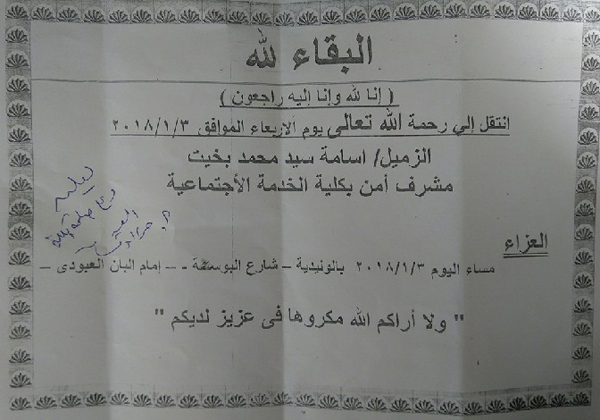 البقاء لله
( إنا لله وإنا إليه راجعون )
إنتقل إلي رحمة الله تعالى يوم الاربعاء الموافق ٢٠١٨/١/٣
الزميل/ اسامة سيد محمد بخيت
مشرف أمن بكلية الخدمة الأجتماعية
العزاء
مساء اليوم ٢٠١٨/١/٣ بالونيدية – شارع البوسطة - – إمام البان العبودى –
" ولا أراكم الله مكروها فى عزيز لديكم "